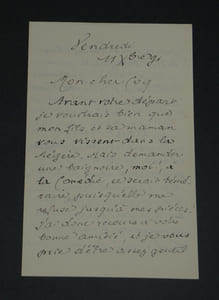 Vendredi
11 Xbre 91
Mon cher Coq
Avant votre départ
je voudrais bien que
mon fils et sa maman
vous vissent dans la
Mégère. Mais demander
une baignoire, moi, à
la Comédie, ce serait témé-
raire puisqu'elle me
refuse jusqu'à mes pièces.
J'ai donc recours à votre
bonne amitié et je vous
prie d'être assez gentil